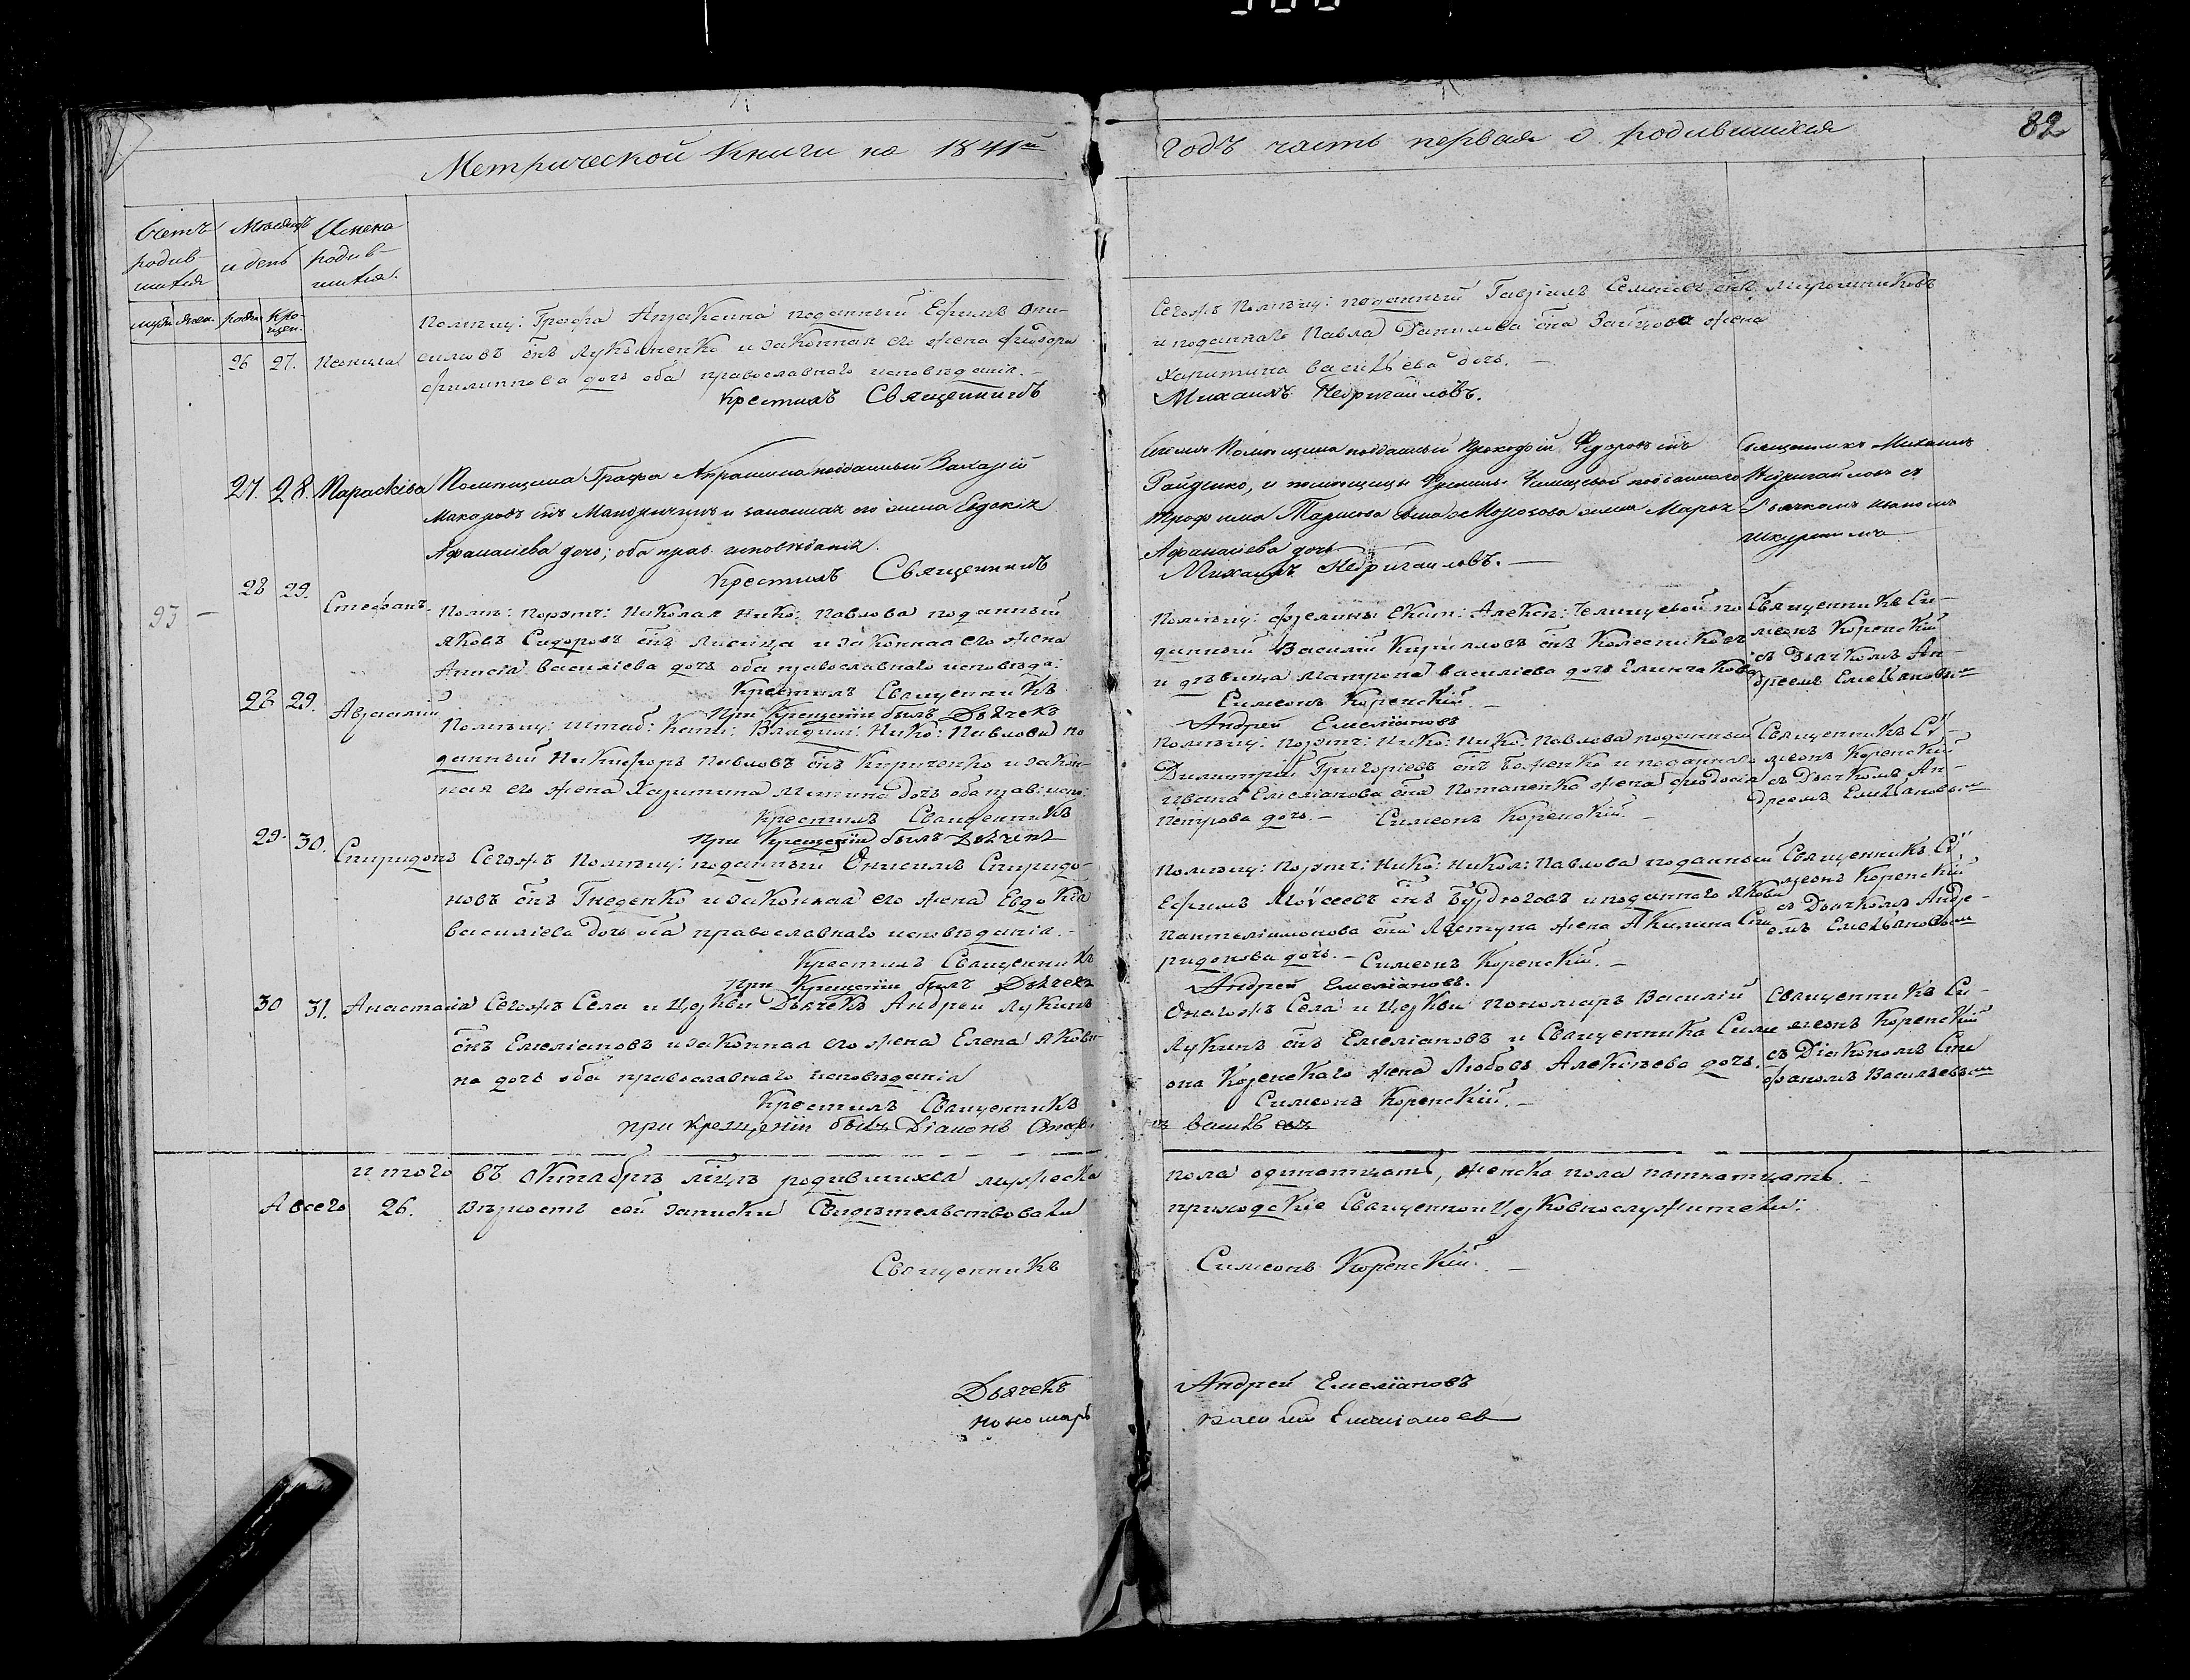 Метрической Книги на 1841й
годъ часть первая о родившихся
82
Счетъ родив- шихся
Мѣсяцъ и день
Имена родив- шихся.
муж. жен. рожд. Кре- щен.
26 27. Неонила
Помѣщ: Графа Апраксина поданный Ефимъ Они-
симовъ снъ Лукьяненко и законная его жена Феодора
Филиппова дочь оба православного исповѣданія. —
Крестилъ Священникъ
Сегожъ Помѣщ: поданный Гавріилъ Семеновъ снъ Мирошниковъ
и поданнаго Павла Данилова сна Зайцова жена
Харитина Васильева дочь. —
Михаилъ Недригайловъ.
27. 28. Параскева
Помѣщика Графа Апраксина подданный Захарій
Макаровъ снъ и законная его жена Евдокія
Афанасіева дочь; оба прав. исповѣданія.
Крестилъ Священникъ
Помѣщика подданный Прокофій Федоровъ снъ
Гайденко, и помѣщицы Фрелины Челищевой подданнаго
Трофима сна Морозова жена Марья
Афанасіева дочь
Михаилъ Недригайловъ. —
Священникъ Михаилъ
Недригайловъ съ
93 —
28 29. Стефанъ.
Помѣ: Порутч: Николая Нико: Павлова поданный
Яковъ Сидоровъ снъ Лисица и законная его жена
Анисія Василіева дочь оба православнаго исповѣда:
Крестилъ Священникъ
При Крещеніи былъ Дьячекъ
Помѣщ: Фрелины Екат: Алекс: Челищевой по
данный Василій Кириловъ снъ Колесниковъ
и дѣвица Матрона Василіева дочь
Симеонъ Коренскій. —
Андрей Емеліановъ
Священникъ Си-
меонъ Коренскій
съ Дьячкомъ Ан-
дреемъ Емельяновым
28 29.
Помѣщ: Штаб: Капи: Владим: Нико: Павлова по
данный Никифоръ Павловъ снъ Кириченко и закон-
ная его жена Харитина дочь оба прав: испо:
Крестилъ Священникъ
При Крещеніи былъ Дьячекъ
Помѣщ: Порутч: Нико: Нико: Павлова поданный
Димитрій Григоріевъ снъ Боженко и поданнаго
Ивана Емеліанова сна Потапенко жена Феодосія
Петрова дочь. — Симеонъ Коренскій. —
Священникъ Си-
меонъ Коренскій
съ Дьячкомъ Ан-
дреемъ Емельяновым
29. 30. Спиридонъ
Сегожъ Помѣщ: поданный Онисимъ Спиридо-
новъ снъ Гнеденко и законная его жена Евдокія
Василіева дочь оба православнаго исповѣданія. —
Крестилъ Священникъ
При Крещеніи былъ Дьячекъ
Помѣщ: Порутч: Нико: Никол: Павлова поданный
Ефимъ Моѵсеевъ снъ и поданного Якова
Пантелімонова сна жена Акилина Спи
ридонова дочь. — Симеонъ Коренскій. —
Андрей Емеліановъ.
Священникъ Си
меонъ Коренскій
съ Дьячкомъ Андре-
емъ Емельяновым
30 31. Анастасія
Сегожъ Села и Церкви Дьячекъ Андрей Лукинъ
снъ Емеліановъ и законная его жена Елена Якови-
на дочь оба православнаго исповѣданія
Крестилъ Священникъ
при Крещеніи былъ Діаконъ Стефа
Оногожъ Села и Церкви пономарь Василій
Лукинъ снъ Емеліановъ и Священника Симе
она Коренскаго жена Любовь Алексѣева дочь.
Симеонъ Коренскій. —
нъ Василь евъ
Священникъ Си-
меонъ Коренскій
съ Діакономъ Сте
фаномъ Васильевым
итого въ октябрѣ мцѣ родившихся мужеска
пола одинатцать, женска пола пятнатцать. —
А всего 26. Вѣрность сей записки Свидѣтельствовали
приходскіе Священноицерковнослужители:
Священникъ Симеонъ Коренскій. —
Дьячекъ Андрей Емеліановъ
пономарь Василий Емелианов